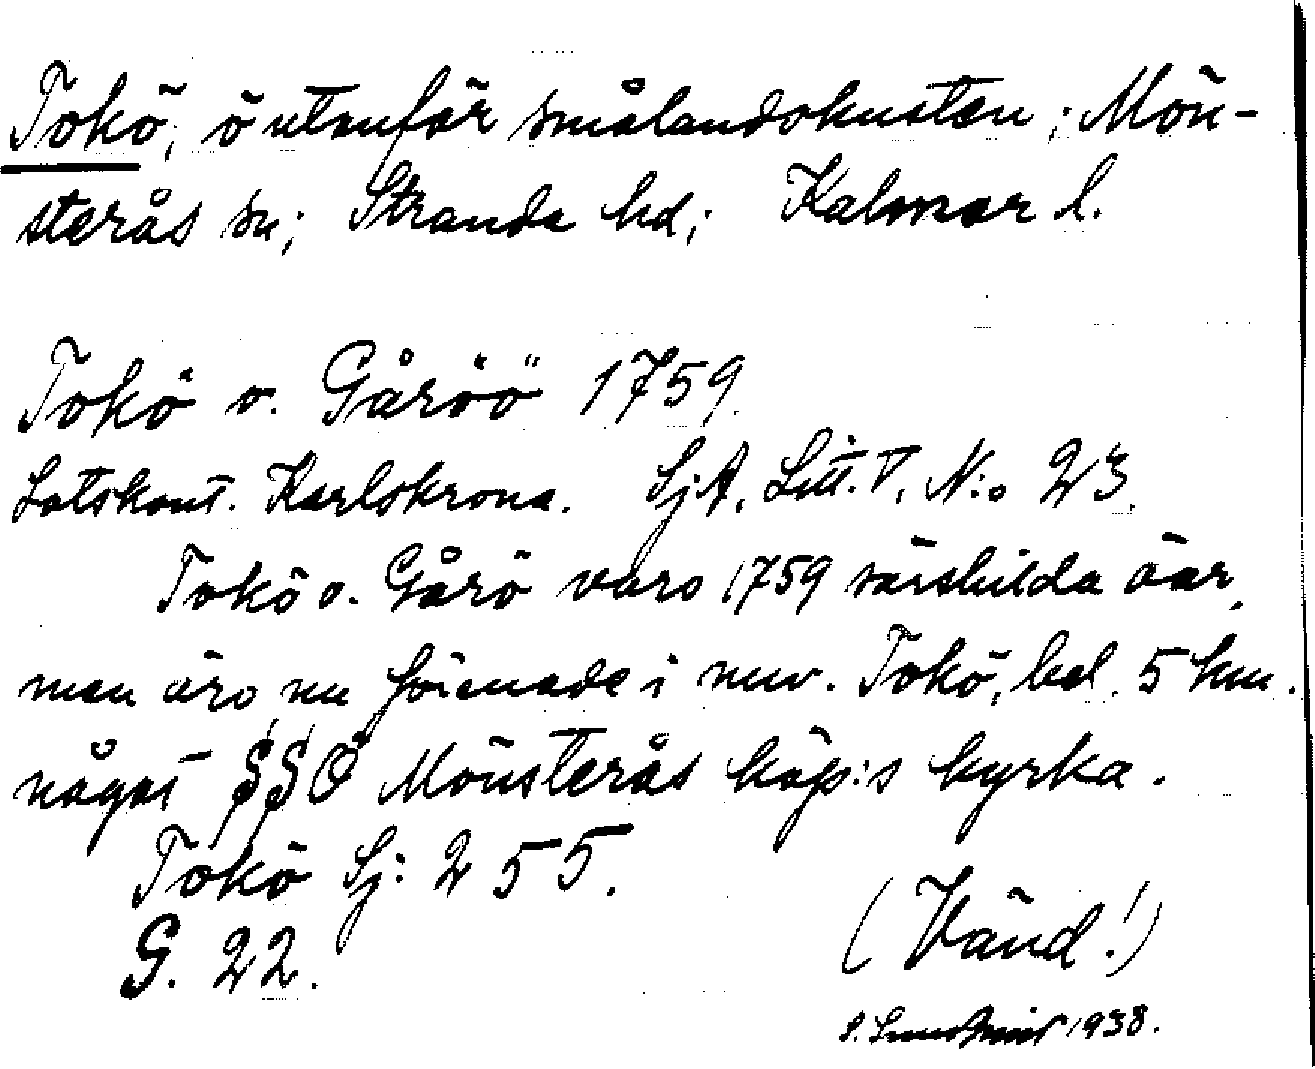 Tokö, ö utanför smålandskusten; Mön-
sterås sn; Stranda hd; Kalmar l.
Tokö o. Gåröö 1759.
Lotskont. Karlskrona. SjA, Litt. T, N:o 23.
Tokö o. Gårö voro 1759 särskilda öar,
men äro nu förenade i nuv. Tokö, bel. 5 km.
något SSO Mönsterås köp:s kyrka.
Tokö Sj: 255.
G. 22.
(Vänd!)
1938.